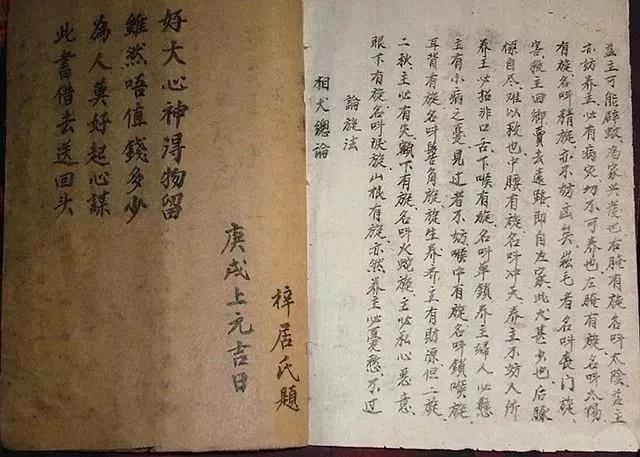 此書借去送回头
為人莫好起心謀
雖然唔值錢多少
好大心神得物留
庚戌上元吉日
梓居氏題
相犬總論
論旋法
眼下有旋名叫淚旋山根有旋亦然养主必憂愁不过
二秋主必有灾顴下有旋名叫火蛇旋主必私心恶意
耳背有旋名叫鬢角旋旋生养养主有財源但二旋
主有小病之憂見过者不妨喉中有旋名叫鎖喉旋
养主必招非口舌下喉有旋名叫单鎖养主婦人必懸
樑自尽难以救也中腰有旋名叫冲天养主不妨人所
害救主回鄉賣去遠路即自在家此犬甚少也后
有旋名叫精旋亦不妨忌矣毛者名叫喪門旋
亦妨养主必有病突切不可养也左腌有旋名叫太陽
益主可能辟蚁为家兴发也右腌有旋名叫太陰益主